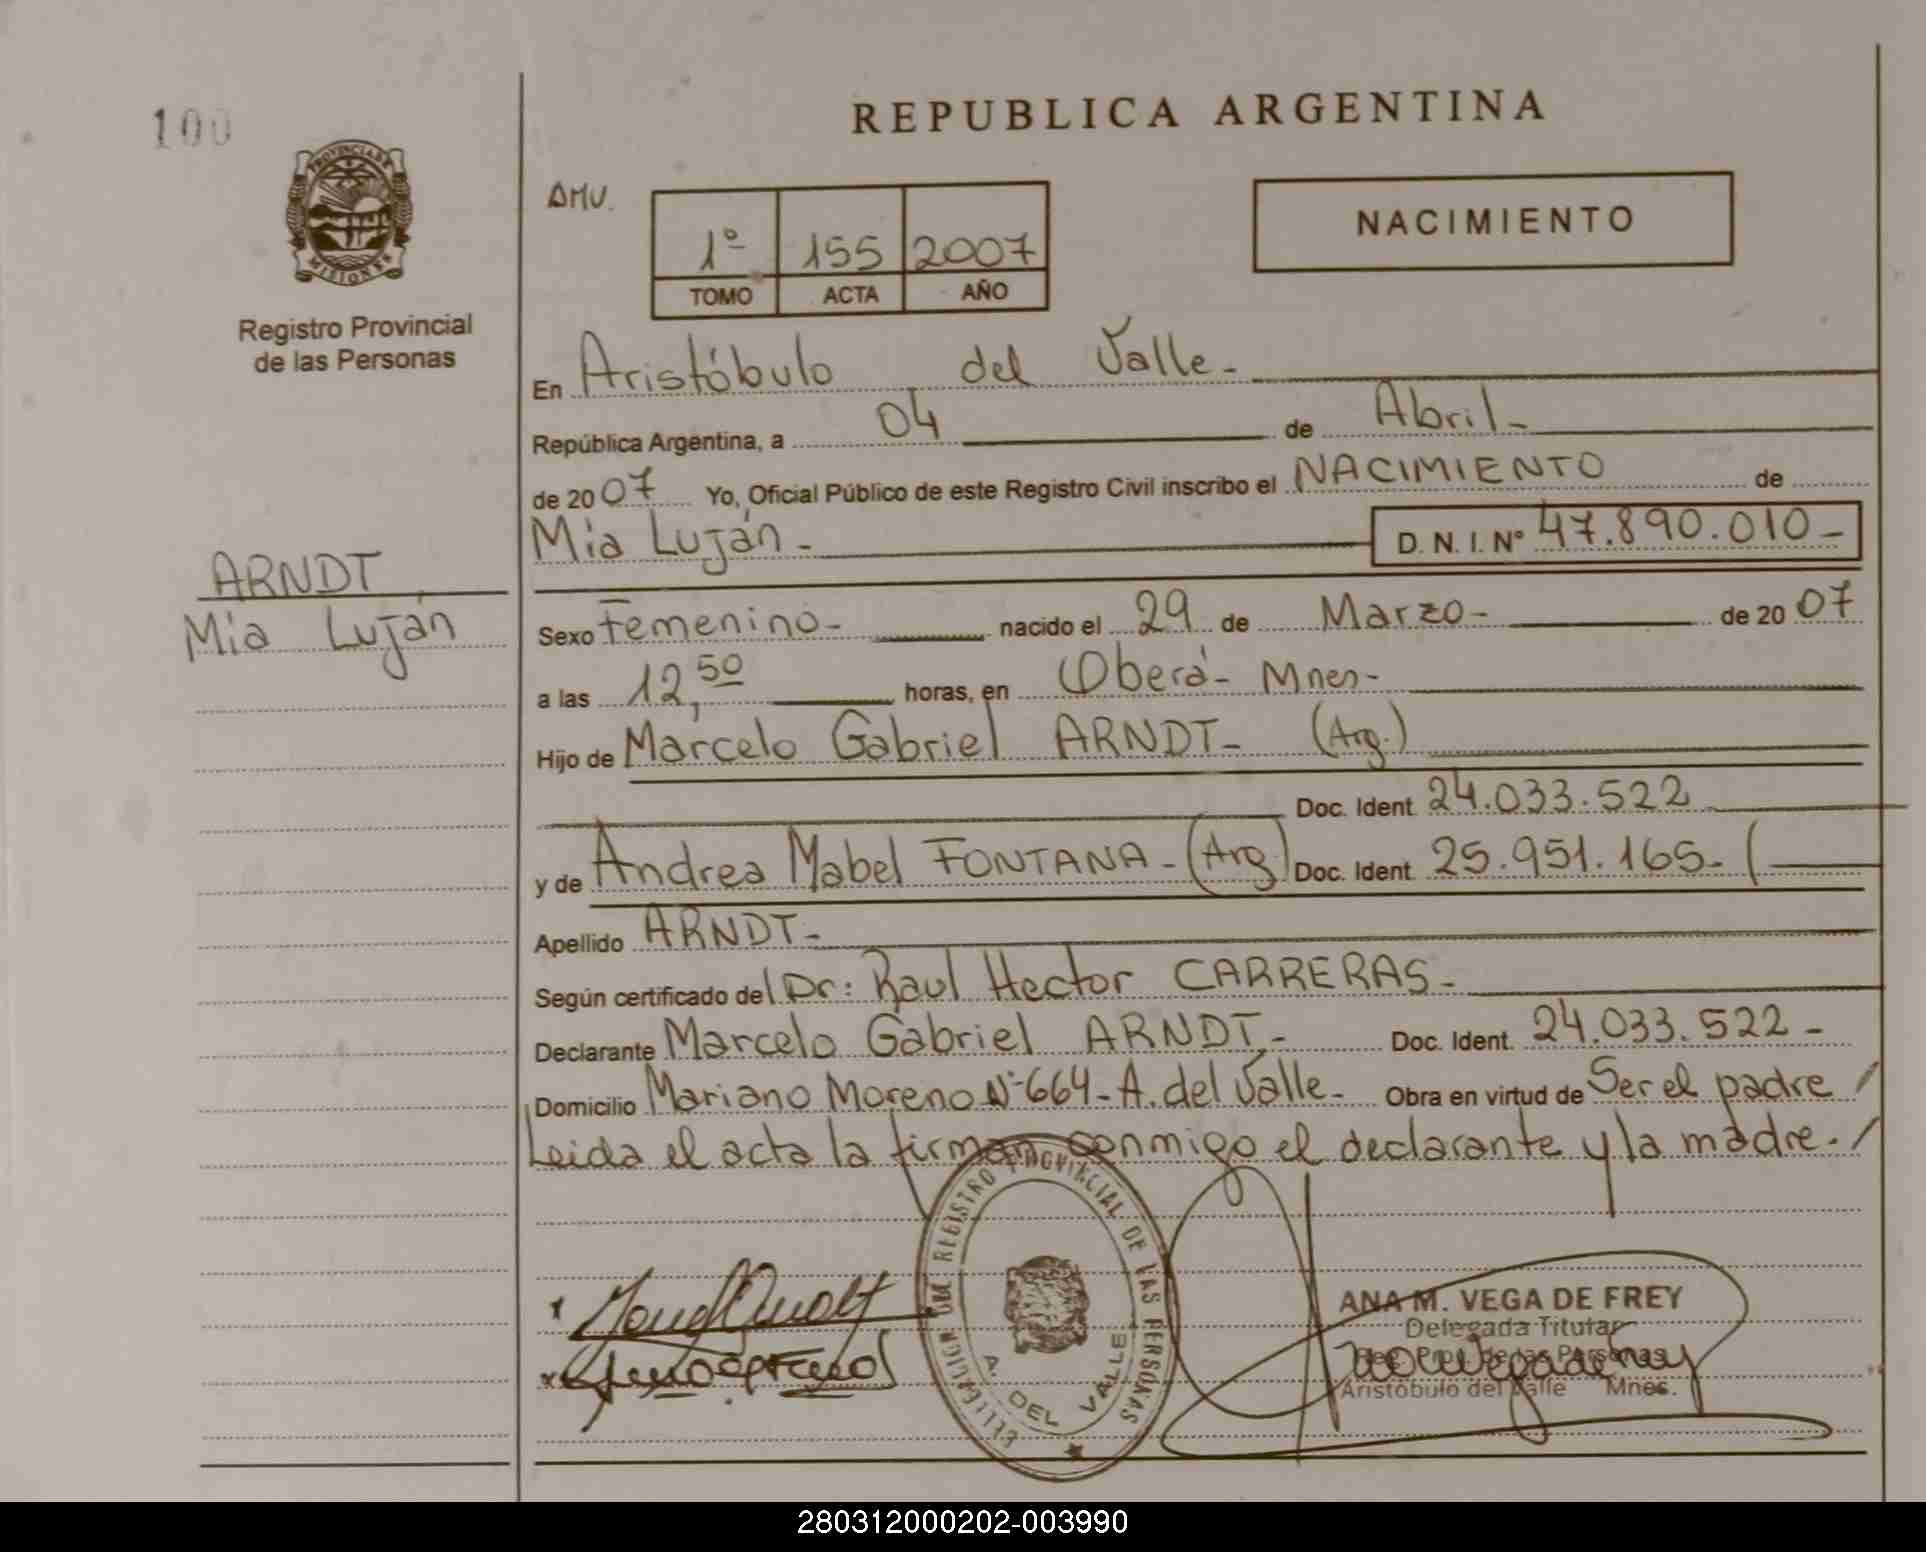 100
PROVINCIA DE
MISIONES
Registro Provincial
de las Personas
REPUBLICA ARGENTINA
AMV.
1º 155 2007
TOMO ACTA AÑO
NACIMIENTO
En Aristóbulo del Valle -
República Argentina, a 04 de Abril -
de 2007 Yo, Oficial Público de este Registro Civil inscribo el NACIMIENTO de
Mia Luján - D. N. I. Nº 47.890.010 -
ARNDT
Mia Luján
Sexo Femenino - nacido el 29 de Marzo - de 2007
a las 12,50 horas, en Oberá - Mnes -
Hijo de Marcelo Gabriel ARNDT - (Arg.)
Doc. Ident. 24.033.522
y de Andrea Mabel FONTANA - (Arg.) Doc. Ident. 25.951.165 - (
Apellido ARNDT -
Según certificado del Dr: Raul Hector CARRERAS -
Declarante Marcelo Gabriel ARNDT - Doc. Ident. 24.033.522 -
Domicilio Mariano Moreno Nº 664 - A. del Valle - Obra en virtud de Ser el padre /
Leida el acta la firman conmigo el declarante y la madre. /
DEL REGISTRO PROVINCIAL DE LAS PERSONAS
A. DEL VALLE
ANA M. VEGA DE FREY
Delegada Titular
Reg. Prov. de las Personas
Aristóbulo del Valle Mnes.
280312000202-003990